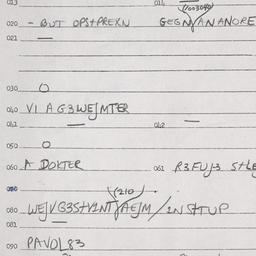 013 014
(003040)
020 - BUT OPS+PREXN GEGN/ANANORE
021 —
030 O
040 VI A G3WEJMTER
041 — 042 —
050 O
060 A DOKTER 061 R3FUJ3 S+LE
(210)
080 WEJVG3S+VINT/AEJM/INSTTUP
081
090 PAVOL83